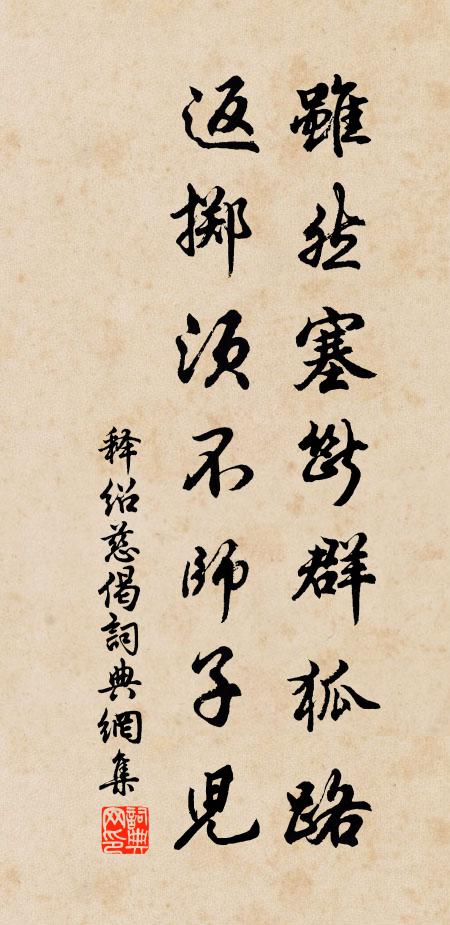 雖然塞斷群狐路
返擲須不師子兒
释紹慈偈詞典網集
詞典网印